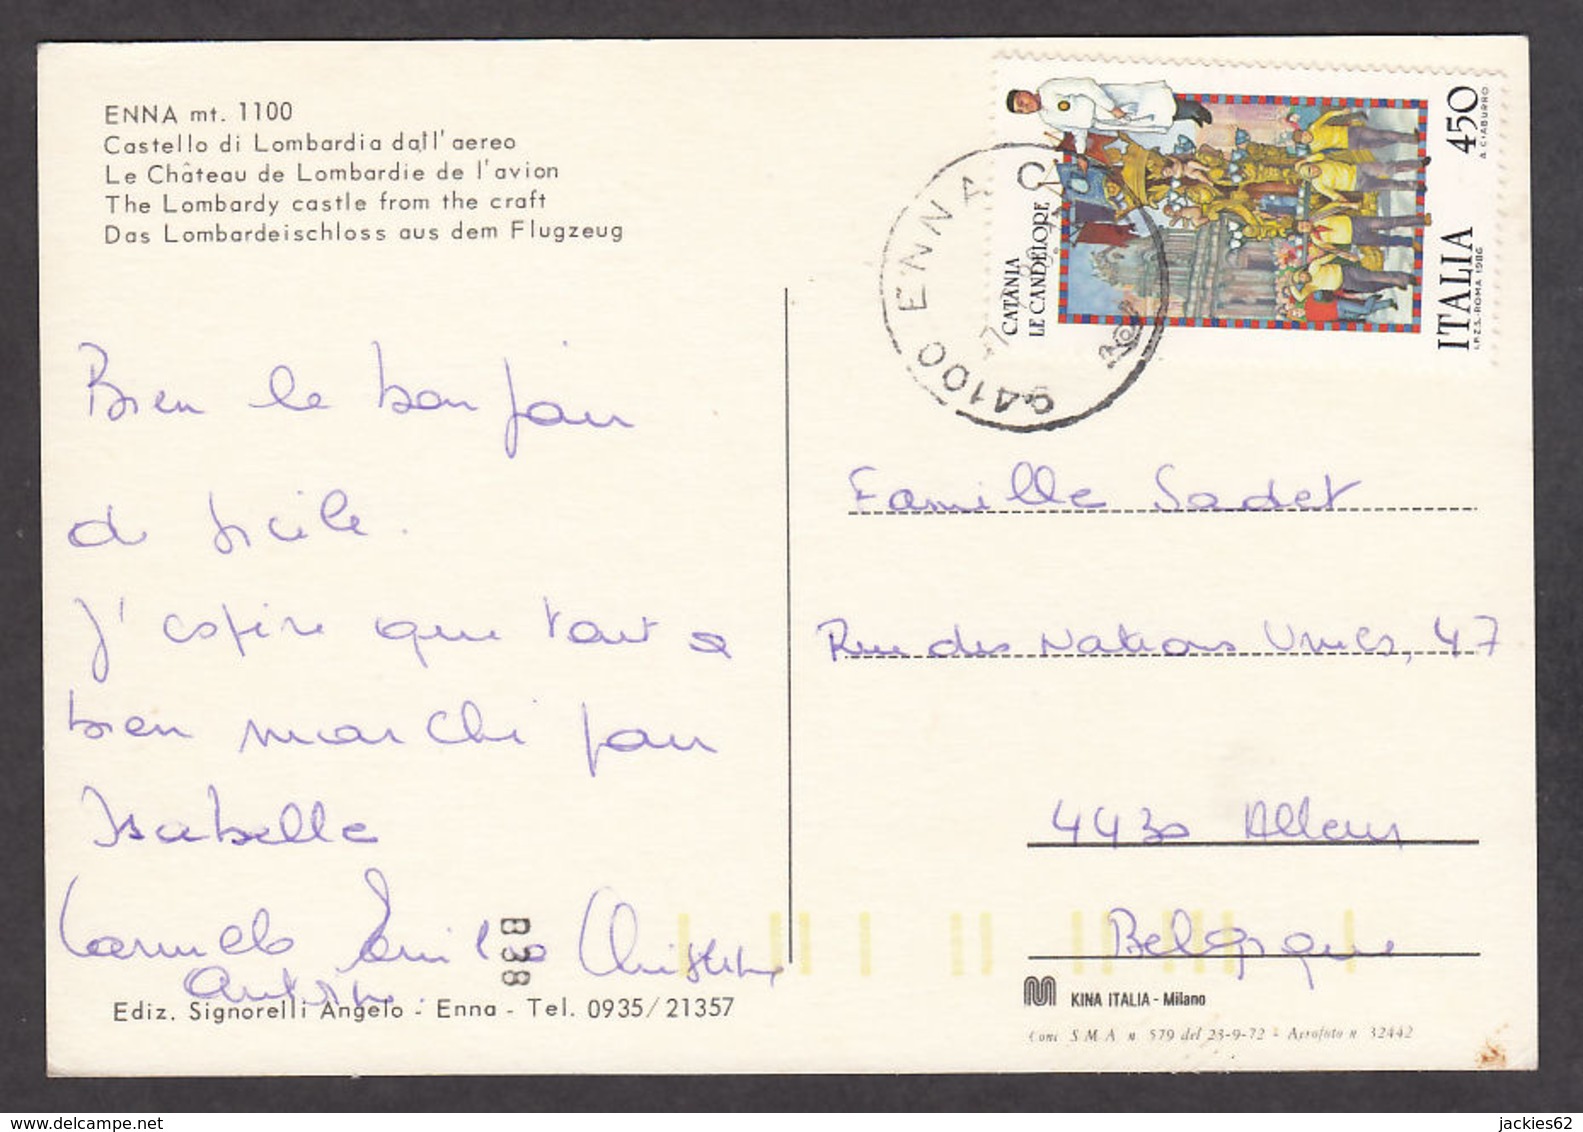 ENNA mt. 1100
Castello di Lombardia dall'aereo
Le Château de Lombardie de l'avion
The Lombardy castle from the craft
Das Lombardeischloss aus dem Flugzeug
Bien le bonjour
de Sicile.
J'espère que tout a
bien marché pour
Isabelle
Carmelo Emilio Christine
B38
Ediz. Signorelli Angelo - Enna - Tel. 0935/21357
CATANIA
LE CANDELORE
ITALIA 450
I.P.Z.S.-ROMA 1986
A. CIABURRO
94100 ENNA
Famille Sadet
Rue des Nations Unies, 47
4430 Alleur
Belgique
KINA ITALIA - Milano
Conc S.M.A. n. 579 del 23-9-72 - Aerofoto n. 32442
jackies62